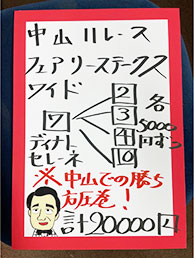 中山11レース
フェアリーステークス
ワイド
7
2
3
4
10
各
5000
円ずつ
ディナト
セレーネ
※中山での勝ち
方圧巻!
計20000円